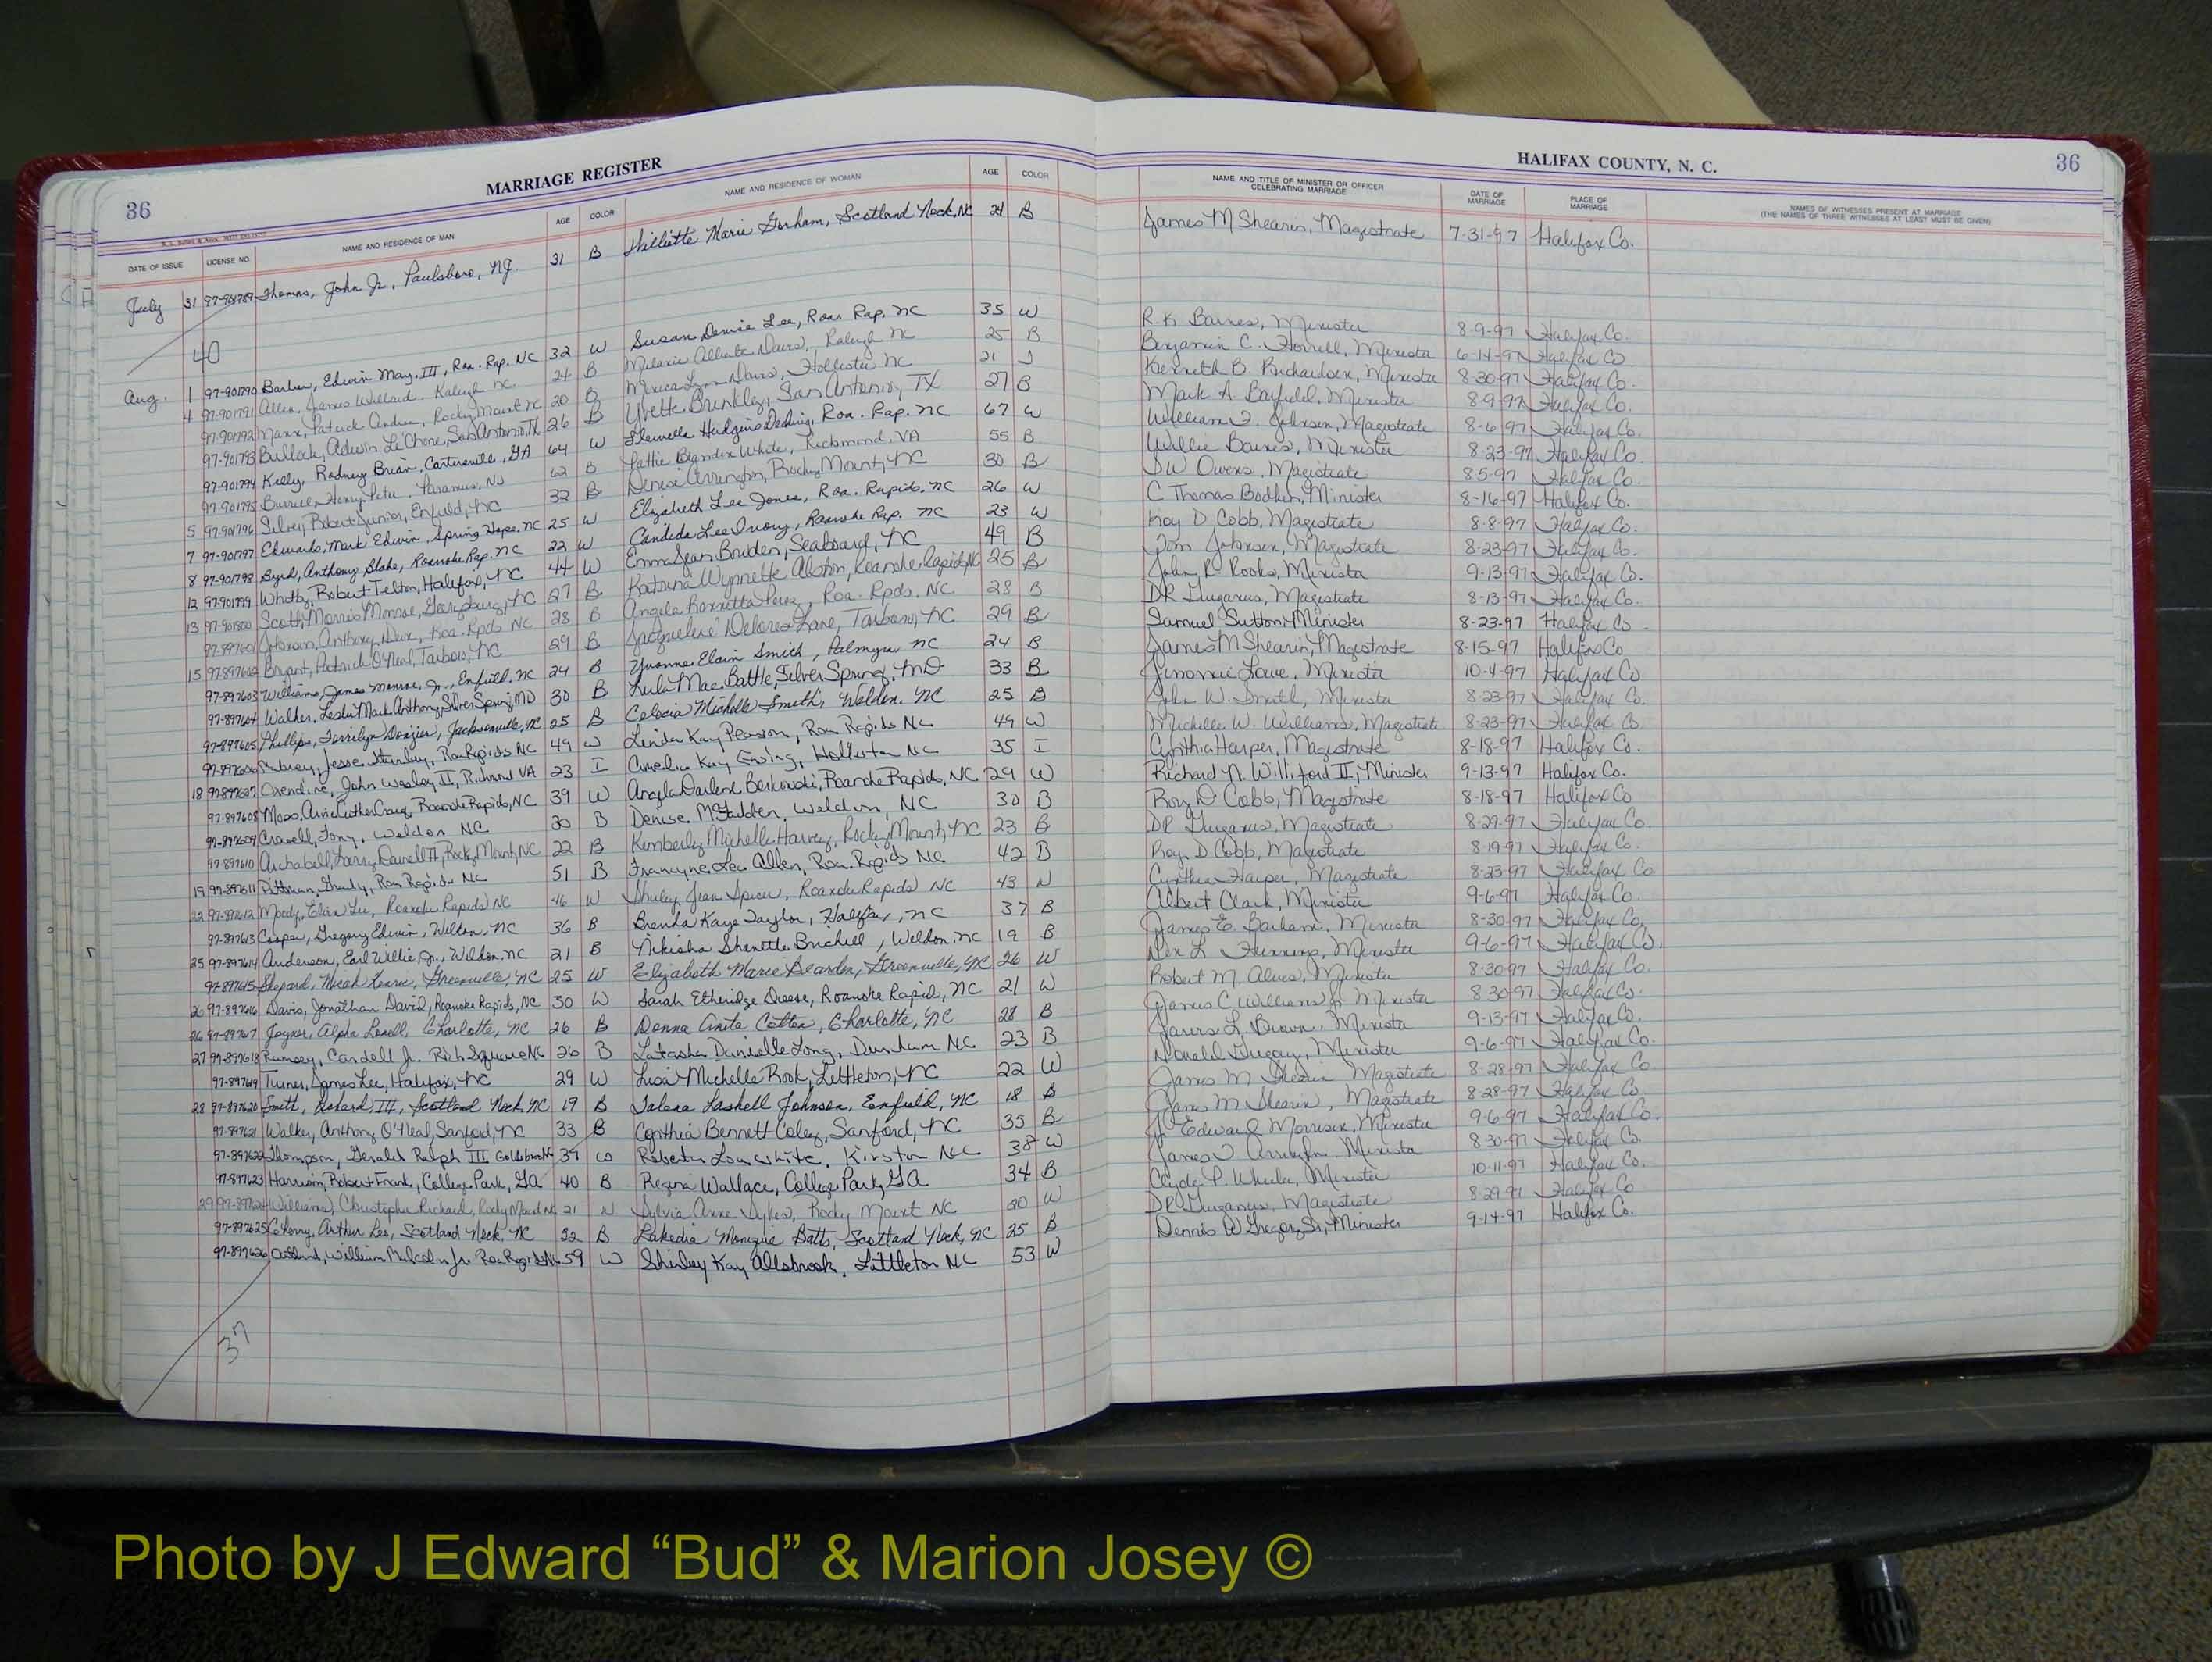 36 MARRIAGE REGISTER
HALIFAX COUNTY, N. C. 36
DATE OF ISSUE LICENSE NO. NAME AND RESIDENCE OF MAN AGE COLOR NAME AND RESIDENCE OF WOMAN AGE COLOR NAME AND TITLE OF MINISTER OR OFFICER CELEBRATING MARRIAGE DATE OF MARRIAGE PLACE OF MARRIAGE NAMES OF WITNESSES PRESENT AT MARRIAGE (THE NAMES OF THREE WITNESSES AT LEAST MUST BE GIVEN)
July 31 97-901789 Thomas, John Jr., Paulsboro, NJ. 31 B Marie Gorham, Scotland Neck, NC 24 B James M Shearin, Magistrate 7-31-97 Halifax Co.
40
Aug. 1 97-901790 Barber, Edwin May, III, Roa. Rap. NC 32 W Susan Denise Lee, Roa. Rap. NC 35 W R. K. Barnes, Minister 8-9-97 Halifax Co.
4 97-901791 Allen, James Willard, Raleigh NC 24 B Davis, Raleigh NC 25 B Benjamin C. Minister 6-14-97 Halifax Co
97-901792 Patrick Andrew, Rocky Mount NC 20 B Lynn Davis, Hollister NC 21 I Kenneth B Richardson, Minister 8-30-97 Halifax Co.
97-901793 Bullock, San Antonio, TX 26 B Yvette Brinkley, San Antonio, TX 27 B Mark A. Minister 8-9-97 Halifax Co.
97-901794 Kelly, Rodney Brian, Cartersville, GA 64 W Hudgins Roa. Rap. NC 67 W William Johnson, Magistrate 8-6-97 Halifax Co.
97-901795 Henry Peter, Paramus, NJ 62 B White, Richmond, VA 55 B Willie Barnes, Minister 8-23-97 Halifax Co.
5 97-901796 Silver, Robert Junior, Enfield, NC 32 B Denise Arrington, Rocky Mount, NC 30 B Owens, Magistrate 8-5-97 Halifax Co.
7 97-901797 Edwards, Mark Edwin, Spring Hope, NC 25 W Elizabeth Lee Jones, Roa. Rapids, NC 26 W C Thomas Minister 8-16-97 Halifax Co.
8 97-901798 Byrd, Anthony Blake, Roanoke Rap. NC 22 W Candida Lee Roanoke Rap. NC 23 W Roy D Cobb, Magistrate 8-8-97 Halifax Co.
12 97-901799 Robert Halifax, NC 44 W Emma Jean Seaboard, NC 49 B Tom Johnson, Magistrate 8-23-97 Halifax Co.
13 97-901800 Scott, Morris Monroe, Garysburg, NC 27 B Katrina Wynnette Alston, Roanoke Rapids, NC 25 B John R Rooks, Minister 9-13-97 Halifax Co.
97-897601 Anthony Roa. Rpds NC 28 B Angela Perez, Roa. Rpds. NC 28 B DR Gurganus, Magistrate 8-13-97 Halifax Co.
15 97-897602 Bryant, Patrick O'Neal, Tarboro, NC 29 B Jacqueline Delores Lane, Tarboro, NC 29 B Samuel Sutton, Minister 8-23-97 Halifax Co
97-897603 Williams, James Monroe, Jr., Enfield, NC 24 B Yvonne Elain Smith, Palmyra NC 24 B James M Shearin, Magistrate 8-15-97 Halifax Co
97-897604 Walker, Leslie Mark Anthony, Silver Spring, MD 30 B Lula Mae Battle, Silver Spring, MD 33 B Jimmie Lowe, Minister 10-4-97 Halifax Co
97-897605 Phillips, Jacksonville, NC 25 B Michelle Smith, Weldon, NC 25 B John W. Smith, Minister 8-23-97 Halifax Co.
97-897606 Jesse Stanley, Roa Rapids NC 49 W Linda Kay Pearson, Roa Rapids NC 49 W Michelle W. Williams, Magistrate 8-23-97 Halifax Co
18 97-897607 Oxendine, John Wesley, II, Richmond VA 23 I Amelia Kay Ewing, Hollister NC 35 I Cynthia Harper, Magistrate 8-18-97 Halifax Co.
97-897608 Moss, Craig, Roanoke Rapids, NC 39 W Angela Darlene Roanoke Rapids, NC 29 W Richard N. Williford II, Minister 9-13-97 Halifax Co.
97-897609 Tony, Weldon NC 30 B Denise McFadden, Weldon, NC 30 B Roy D Cobb, Magistrate 8-18-97 Halifax Co
97-897610 Archabell, Larry Darnell II, Rocky Mount, NC 22 B Kimberly Michelle Harvey, Rocky Mount, NC 23 B DR Gurganus, Magistrate 8-29-97 Halifax Co.
19 97-897611 Pittman, Roa Rapids NC 51 B Francyne Lee Allen, Roa. Rapids NC 42 B Roy D Cobb, Magistrate 8-19-97 Halifax Co.
22 97-897612 Moody, Lee, Roanoke Rapids NC 46 W Shirley Jean Spicer, Roanoke Rapids NC 43 W Cynthia Harper, Magistrate 8-23-97 Halifax Co
97-897613 Cooper, Gregory Edwin, Weldon, NC 36 B Brenda Kaye Taylor, Halifax, NC 37 B Albert Clark, Minister 9-6-97 Halifax Co.
25 97-897614 Anderson, Earl Willie, Jr., Weldon, NC 21 B Nikisha Shantelle Weldon, NC 19 B James E. Barham, Minister 8-30-97 Halifax Co,
97-897615 Shepard, Micah Greenville, NC 25 W Elizabeth Marie Bearden, Greenville, NC 26 W Minister 9-6-97 Halifax Co.
26 97-897616 Davis, Jonathan David, Roanoke Rapids, NC 30 W Sarah Etheridge Deese, Roanoke Rapid, NC 21 W Robert M. Minister 8-30-97 Halifax Co.
26 97-897617 Joyner, Alpha Charlotte, NC 26 B Donna Anita Cotten, Charlotte, NC 28 B James C Williams Jr. Minister 8-30-97 Halifax Co.
27 97-897618 Ramsey, Cardell Jr. Rich Square NC 26 B Latasha Danielle Long, Durham NC 23 B L. Brown, Minister 9-13-97 Halifax Co.
97-897619 Turner, James Lee, Halifax, NC 29 W Lisa Michelle Rook, Littleton, NC 22 W Donald Minister 9-6-97 Halifax Co.
28 97-897620 Smith, Richard, III, Scotland Neck, NC 19 B Talena Lashell Johnson, Enfield, NC 18 B James M Shearin Magistrate 8-28-97 Halifax Co.
97-897621 Walker, Anthony O'Neal, Sanford, NC 33 B Cynthia Bennett Coley, Sanford, NC 35 B James M Shearin, Magistrate 8-28-97 Halifax Co
97-897622 Thompson, Gerald Ralph III Goldsboro NC 39 W Roberta Lou White, Kinston NC 38 W J. Edward Morrison, Minister 9-6-97 Halifax Co.
97-897623 Harrison, Robert Frank, College Park, GA 40 B Regina Wallace, College Park, GA 34 B James Minister 8-30-97 Halifax Co
29 97-897624 Williams, Christopher Richard, Rocky Mount NC 21 W Sylvia Anne Sykes, Rocky Mount NC 20 W Clyde P. Wheeler, Minister 10-11-97 Halifax Co.
97-897625 Cherry, Arthur Lee, Scotland Neck, NC 32 B Lakedia Monique Batts, Scotland Neck, NC 25 B DR Gurganus, Magistrate 8-29-97 Halifax Co
97-897626 William Malcolm Jr. Roa Rapids NC 59 W Shirley Kay Allsbrook, Littleton NC 53 W Dennis W Gregory, Sr, Minister 9-14-97 Halifax Co.
37
Photo by J Edward “Bud” & Marion Josey ©